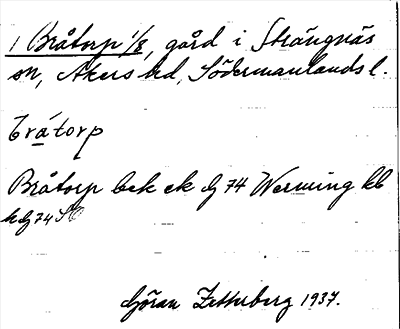 1 Bråtorp 1/8, gård i Strängnäs
sn, Åkers hd, Södermanlands l.
brátorp
Bråtorp bek ek Dj 74 Werming kb
Dj 74
Göran Zetterberg 1937.